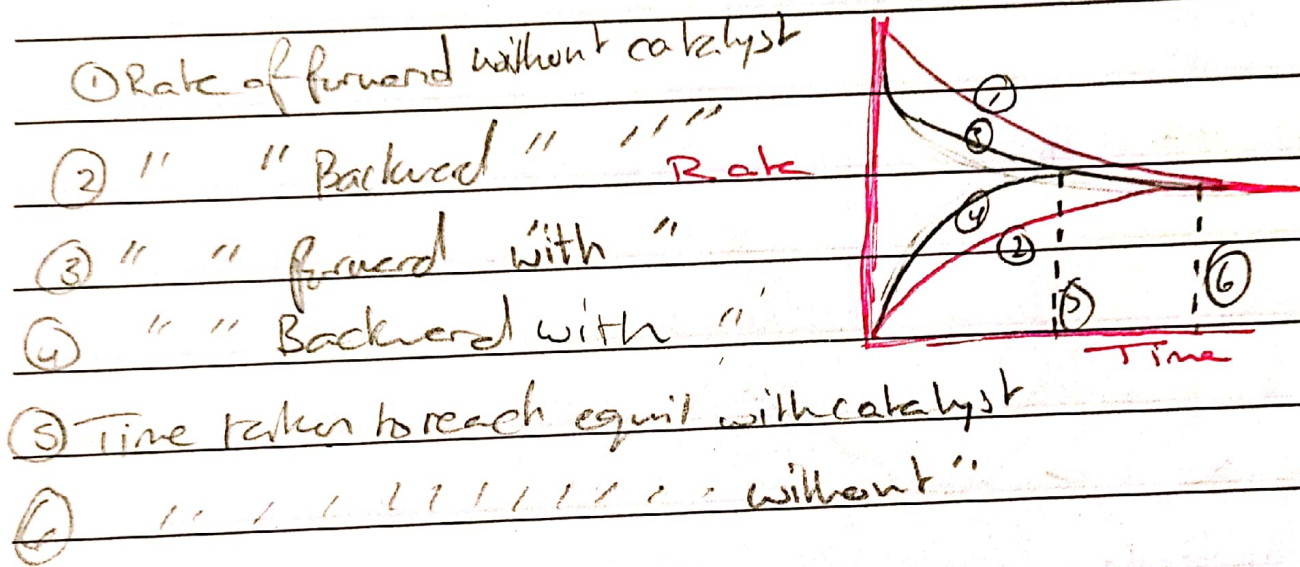 ① Rate of forward without catalyst
② " " Backward " " "
③ " " forward with "
④ " " Backward with "
⑤ Time taken to reach equil with catalyst
⑥ " " " " " " " " " " without "
Rate
①
③
④
②
⑤
⑥
Time